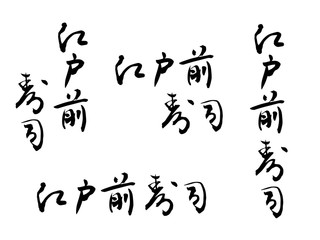 江戸前
寿司
江戸前
寿司
江戸前寿司
江戸前寿司